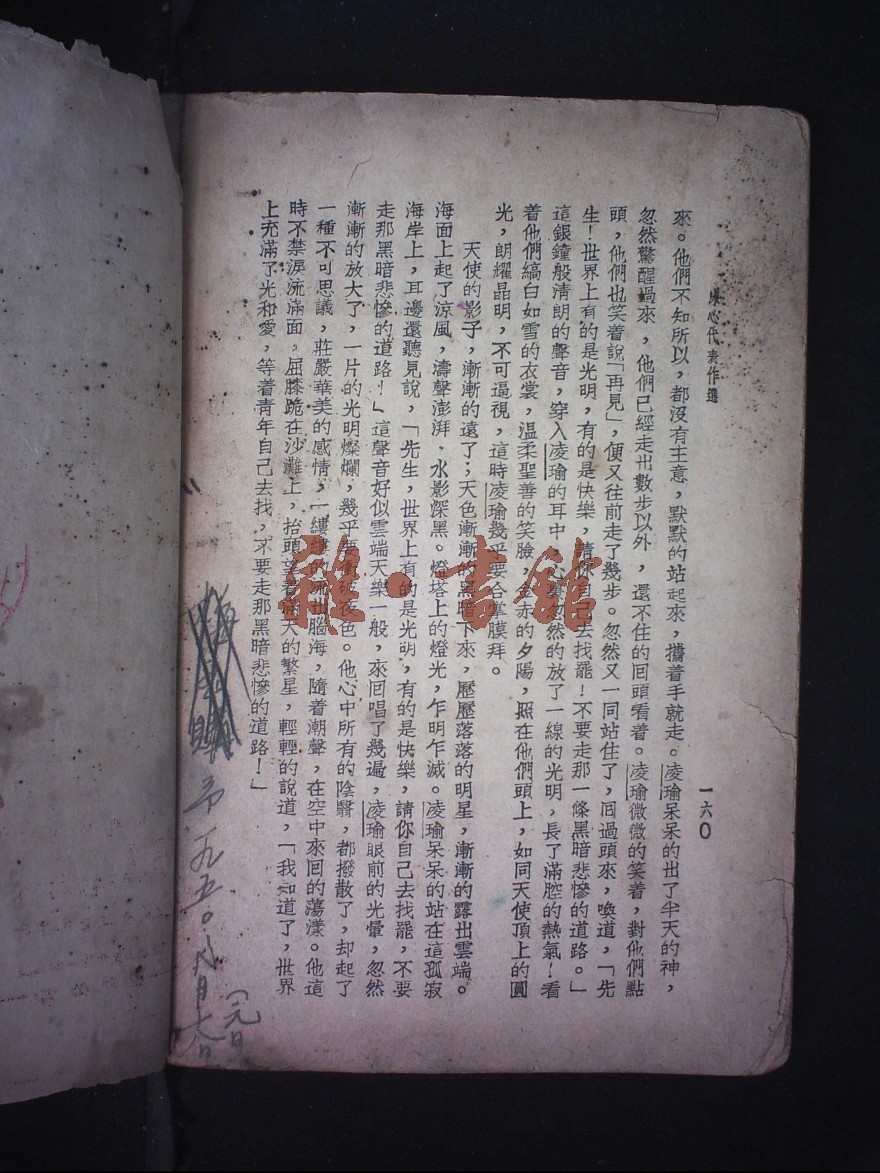 冰心代表作選
一六〇
來。他們不知所以，都沒有主意，默默的站起來，攜着手就走。凌瑜呆呆的出了半天的神，
忽然驚醒過來，他們已經走出數步以外，還不住的回頭看着。凌瑜微微的笑着，對他們點
頭，他們也笑着說「再見」，便又往前走了幾步。忽然又一同站住了，回過頭來，喚道，「先
生！世界上有的是光明，有的是快樂，請你自己去找罷！不要走那一條黑暗悲慘的道路。」
這銀鐘般清朗的聲音，穿入凌瑜的耳中，心裏忽然的放了一線的光明，長了滿腔的熱氣！看
着他們縞白如雪的衣裳，溫柔聖善的笑臉，金赤的夕陽，照在他們頭上，如同天使頂上的圓
光，朗耀晶明，不可逼視，這時凌瑜幾乎要合掌膜拜。
天使的影子，漸漸的遠了；天色漸漸的黑暗下來，歷歷落落的明星，漸漸的露出雲端。
海面上起了涼風，濤聲澎湃，水影深黑。燈塔上的燈光，乍明乍滅。凌瑜呆呆的站在這孤寂
海岸上，耳邊還聽見說，「先生，世界上有的是光明，有的是快樂，請你自己去找罷，不要
走那黑暗悲慘的道路！」這聲音好似雲端天樂一般，來回唱了幾遍，凌瑜眼前的光暈，忽然
漸漸的放大了，一片的光明燦爛，幾乎要衝破夜色。他心中所有的陰翳，都撥散了，却起了
一種不可思議，莊嚴華美的感情，一縷縷的流出腦海，隨着潮聲，在空中來回的蕩漾。他這
時不禁淚流滿面，屈膝跪在沙灘上，抬頭望着滿天的繁星，輕輕的說道，「我知道了，世界
上充滿了光和愛，等着青年自己去找，不要走那黑暗悲慘的道路！」
一九五〇·
雜·書館